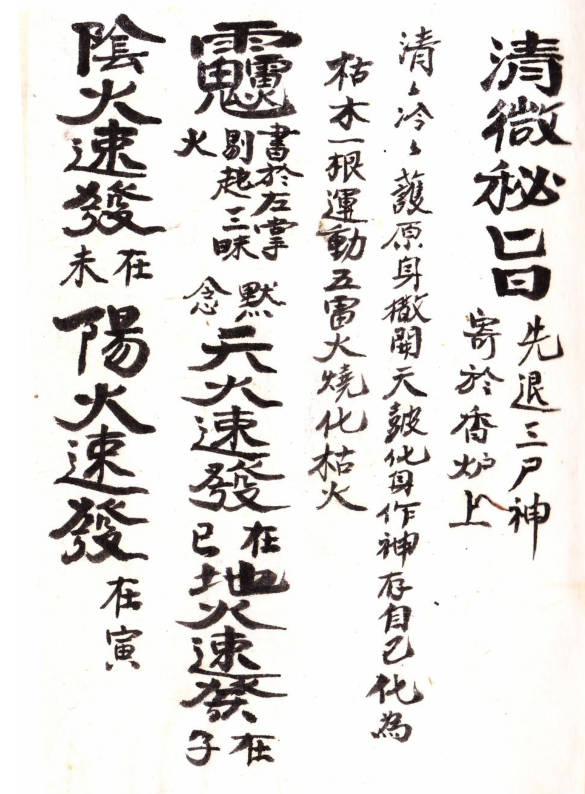 清微秘旨 先退三尸神寄於香炉上
清々冷々護原身撒開天皷化身作神存自己化為
枯木一根運動五雷火燒化枯火
書於左掌剔起三昧火 默念 天火速發在巳 地火速發在子
陰火速發在未 陽火速發在寅